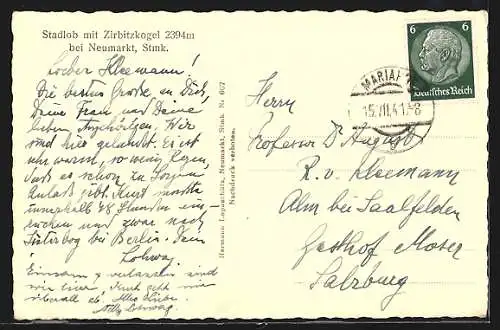 Stadlob mit Zirbitzkogel 2394m
bei Neumarkt, Stmk.
Lieber Kleemann!
Die besten Grüsse an Dich,
Deine Frau und Deine
lieben Angehörigen. Wir
sind hier gelandet. Es ist
sehr warm, so wenig Regen,
daß es schon zu Sorgen
Anlaß gibt. Kurt mußte
innerhalb 48 Stunden ein-
rücken und zwar nach
Jüterbog bei Berlin. Dein
sind
wir hier. Kurt geht uns
überall ab. Alles Liebe
Hermann Neumarkt, Stmk. Nr. 607
Nachdruck verboten.
6 6
Deutsches Reich
MARIA
15.VII.41.-8
Herrn
Professor Dr August
R. v. Kleemann
Alm bei Saalfelden
Gasthof Moser
Salzburg